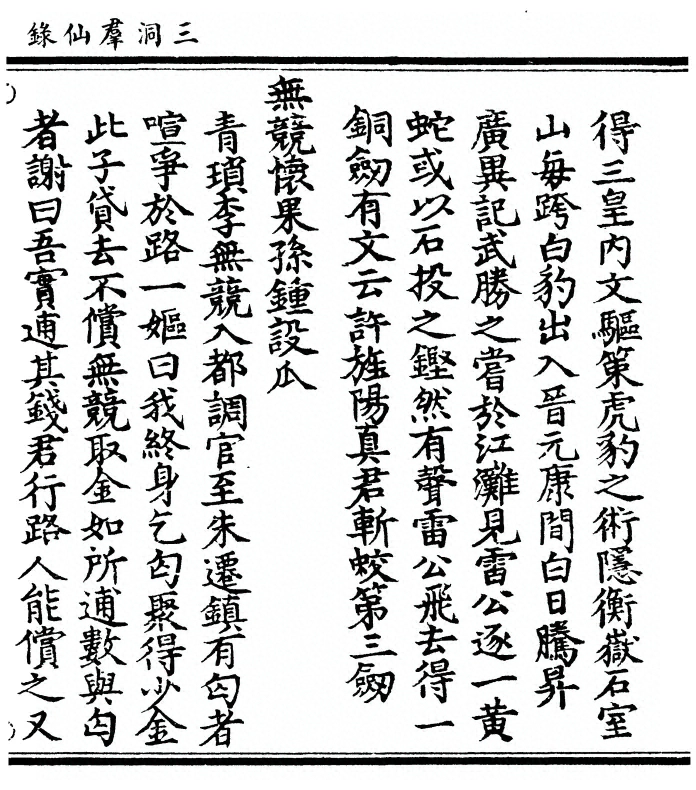 三洞羣仙錄
得三皇內文驅策虎豹之術隱衡嶽石室
山每跨白豹出入晉元康間白日騰昇
廣異記武勝之嘗於江灘見雷公逐一黃
蛇或以石投之鏗然有聲雷公飛去得一
銅劒有文云許旌陽真君斬蛟第三劒
無競懷果孫鍾設瓜
青瑣李無競入都調官至朱遷鎮有匃者
喧爭於路一嫗曰我終身乞匃聚得少金
此子貸去不償無競取金如所逋數與匃
者謝曰吾實逋其錢君行路人能償之又